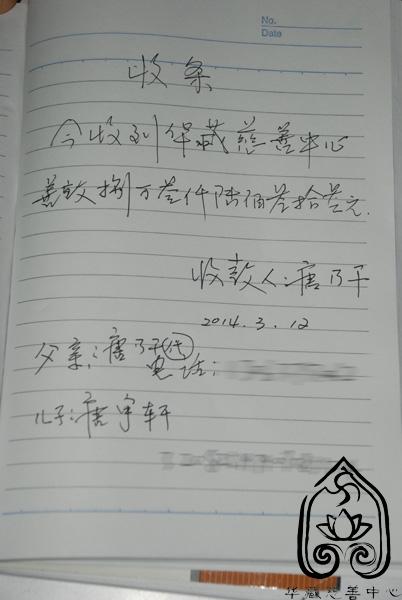 No.
Date
收条
今收到华藏慈善中心
善款捌万叁仟陆佰叁拾叁元.
收款人:唐乃千
2014.3.12
父亲:唐乃千(代)
电话:
儿子:唐宇轩
华藏慈善中心